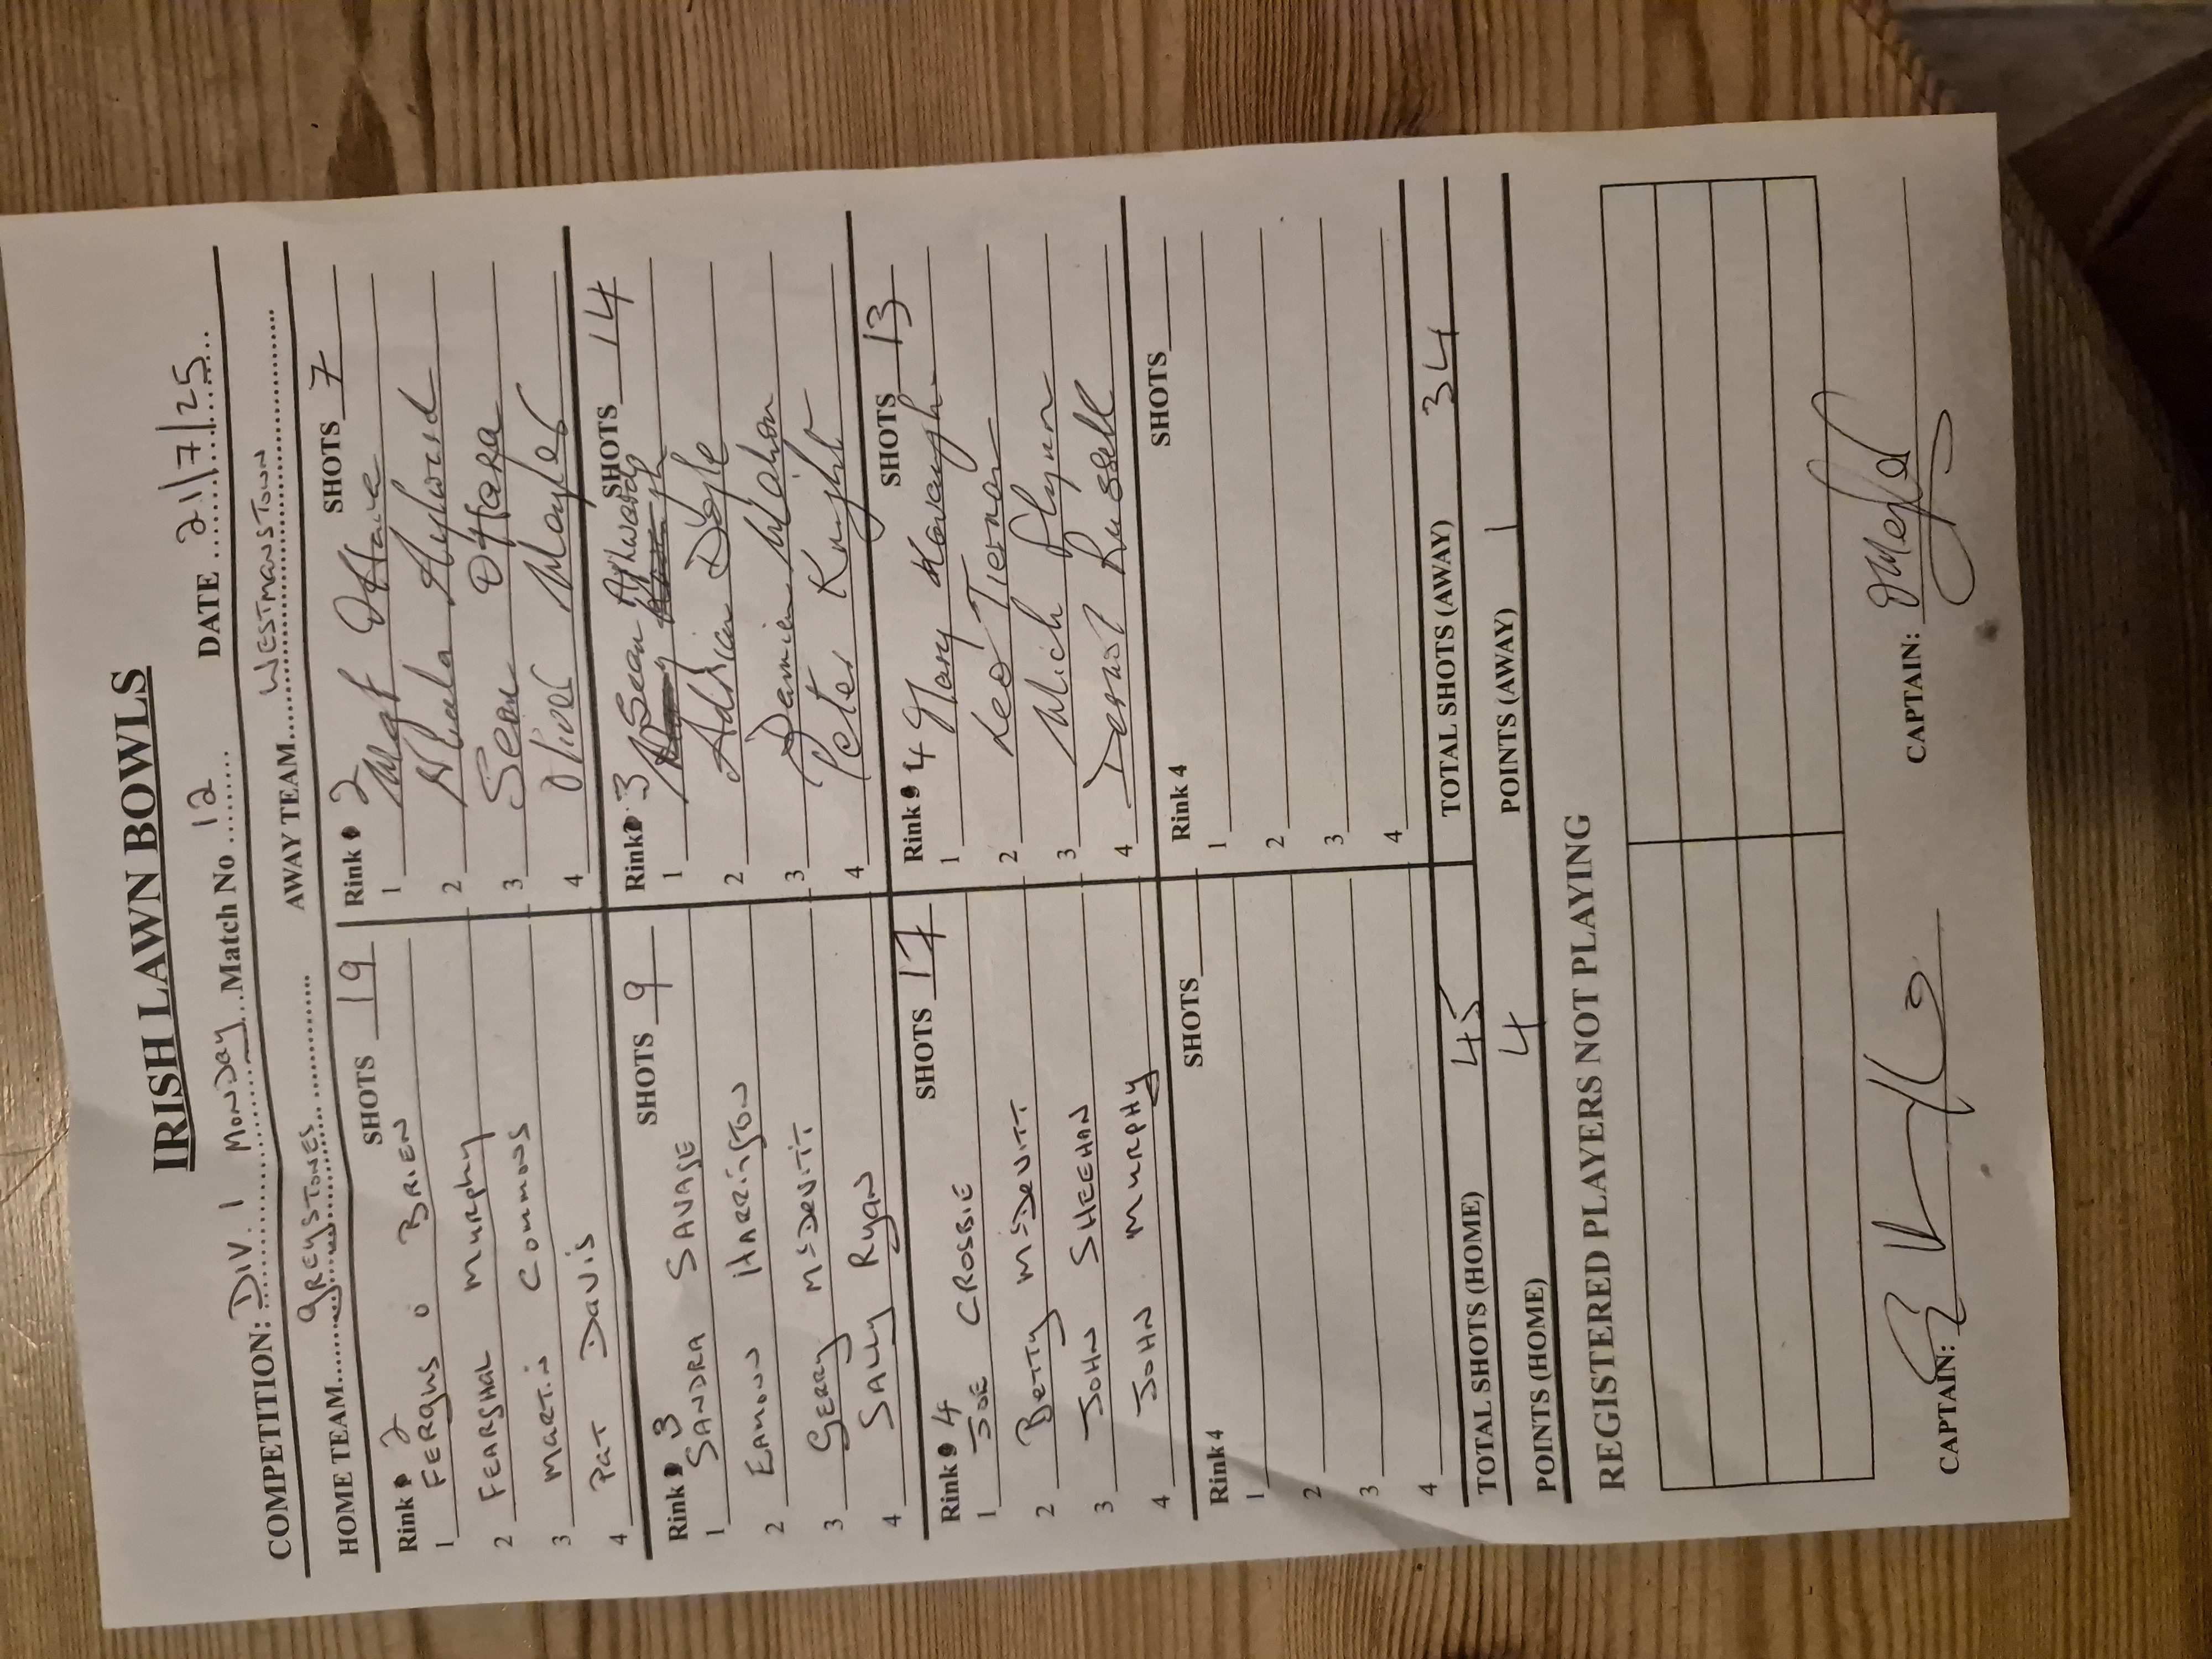 IRISH LAWN BOWLS
COMPETITION: DIV. 1 MONDAY Match No 12 DATE 21/7/25
HOME TEAM GREYSTONES AWAY TEAM WESTMANSTOWN
Rink 2 SHOTS 19 Rink 2 SHOTS 7
1 FERGUS O BRIEN 1 O'Hare
2 FEARGHAL MURPHY 2 Nuala Aylward
3 MARTIN COMMONS 3 Sean O'Hara
4 PAT DAVIS 4 Oliver
Rink 3 SHOTS 9 Rink 3 SHOTS 14
1 SANDRA SAVAGE 1 Sean Aylward
2 EAMONN HARRINGTON 2 Adrian Doyle
3 GERRY McDEVITT 3 Damien Mahon
4 SALLY RYAN 4 Peter Knight
Rink 4 SHOTS 17 Rink 4 SHOTS 13
1 JOE CROSBIE 1 Mary Kavanagh
2 BETTY McDEVITT 2 Leo Tiernan
3 JOHN SHEEHAN 3 Mick Flynn
4 JOHN MURPHY 4 Dermot Russell
Rink 4 SHOTS Rink 4 SHOTS
1 1
2 2
3 3
4 4
TOTAL SHOTS (HOME) 45 TOTAL SHOTS (AWAY) 34
POINTS (HOME) 4 POINTS (AWAY) 1
REGISTERED PLAYERS NOT PLAYING
CAPTAIN: CAPTAIN: